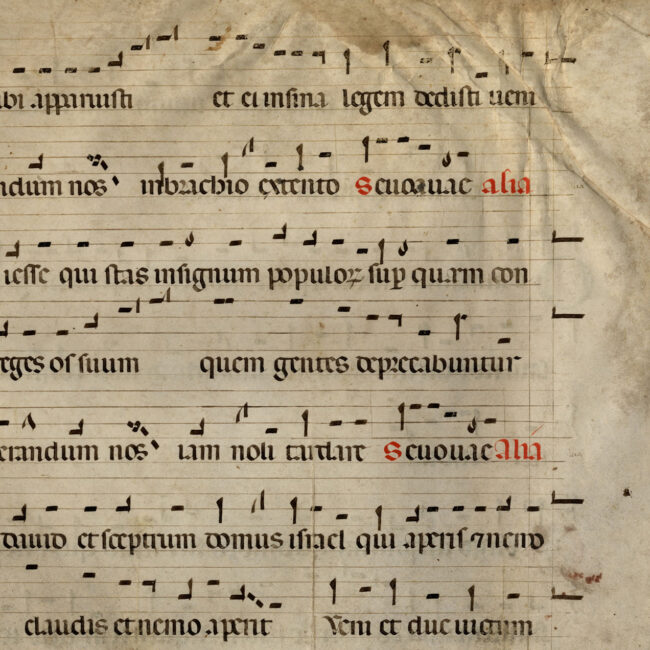 ibi apparuisti et ei in sina legem dedisti ueni
ndum nos inbrachio extento Seuouae alia
iesse qui stas insignum populoꝝ suꝑ quem con
eges os suum quem gentes deprecabuntur
erandum nos iam noli tardare Seuouae Alia
dauid et sceptrum domus israel qui aperis ⁊ nemo
claudis et nemo aperit Veni et duc uictum